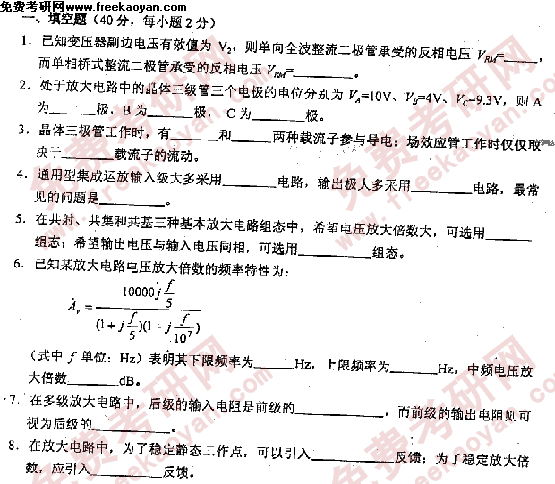 免费考研网
http://freekaoyan.com
一、填空题（40分，每小题2分）
1．已知变压器副边电压有效值为 V₂，则单向全波整流二极管承受的反相电压 V_RM=______，
而单相桥式整流二极管承受的反相电压 V_RM=________。
2．处于放大电路中的晶体三级管三个电极的电位分别为 V_A=10V、V_B=4V、V_C=9.3V，则 A
为______极，B 为______极，C 为______极。
3．晶体三极管工作时，有______和______两种载流子参与导电；场效应管工作时仅仅取
决于______载流子的流动。
4．通用型集成运放输入级大多采用______电路，输出极大多采用______电路，最常
见的问题是________。
5．在共射、共集和共基三种基本放大电路组态中，希望电压放大倍数大，可选用______
组态；希望输出电压与输入电压同相，可选用________组态。
6．已知某放大电路电压放大倍数的频率特性为：
Ȧ_v = 10000j(f/5) / (1+j f/5)(1+j f/10⁷)
（式中 f 单位：Hz）表明其下限频率为______Hz，上限频率为______Hz，中频电压放
大倍数______dB。
7．在多级放大电路中，后级的输入电阻是前级的________，而前级的输出电阻则可
视为后级的________。
8．在放大电路中，为了稳定静态工作点，可以引入________反馈；为了稳定放大倍
数，应引入________反馈。
免费考研网
www.freekaoyan.com